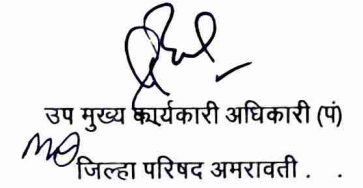 उप मुख्य कार्यकारी अधिकारी (पं)
जिल्हा परिषद अमरावती . .